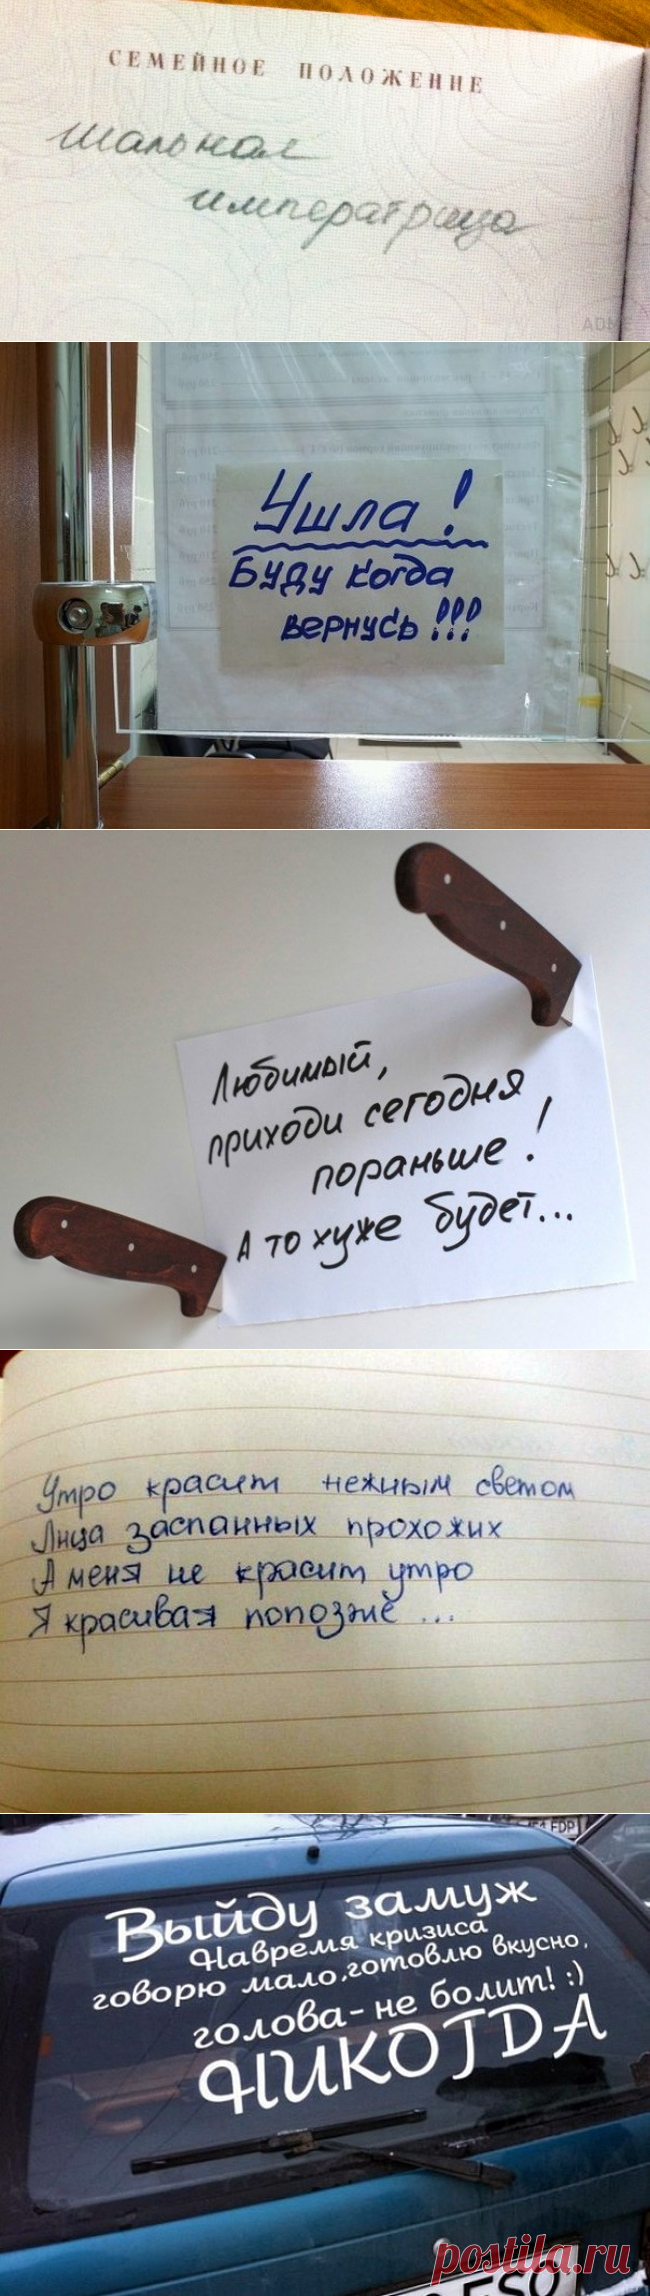 СЕМЕЙНОЕ ПОЛОЖЕНИЕ
шальная
императрица
ADME
Ушла!
Буду когда
вернусь!!!
Любимый,
приходи сегодня
пораньше!
А то хуже будет...
Утро красит нежным светом
Лица заспанных прохожих
А меня не красит утро
Я красивая попозже ...
Выйду замуж
Навремя кризиса
говорю мало,готовлю вкусно,
голова-не болит! :)
НИКОГДА
postila.ru